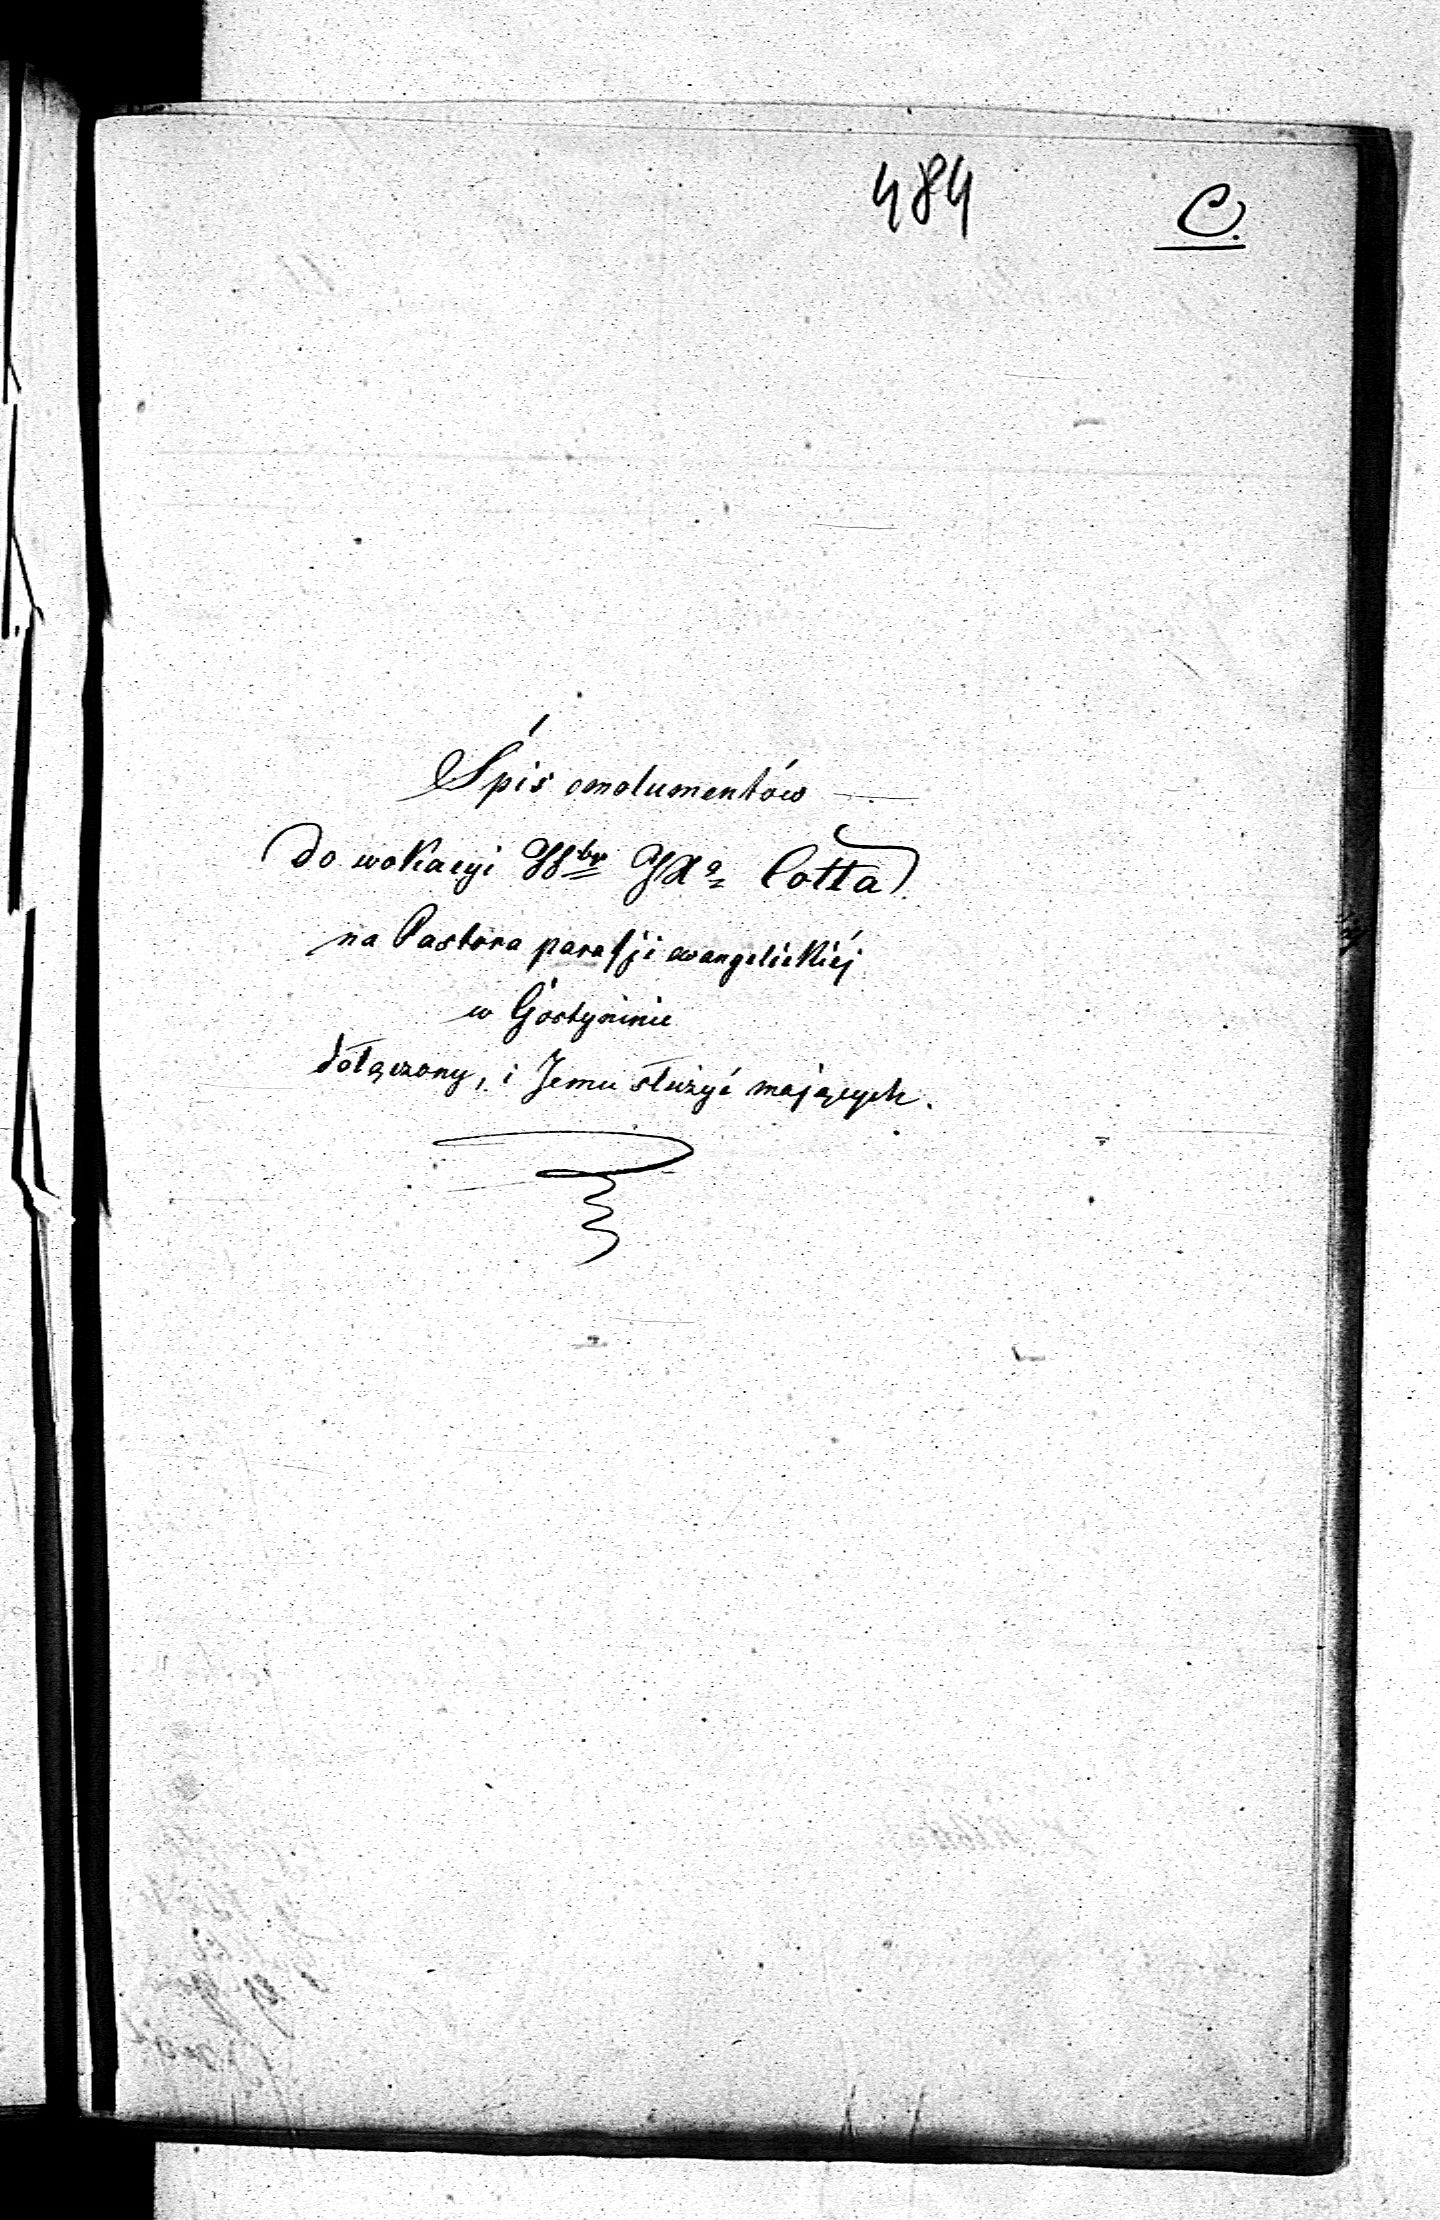 484 C.
Śpis emolumentów
do wokacyi JXa Cotta
na Pastora parafji ewangelickiéj
w Góstyninie
dołączony, i Jemu służyć mających.